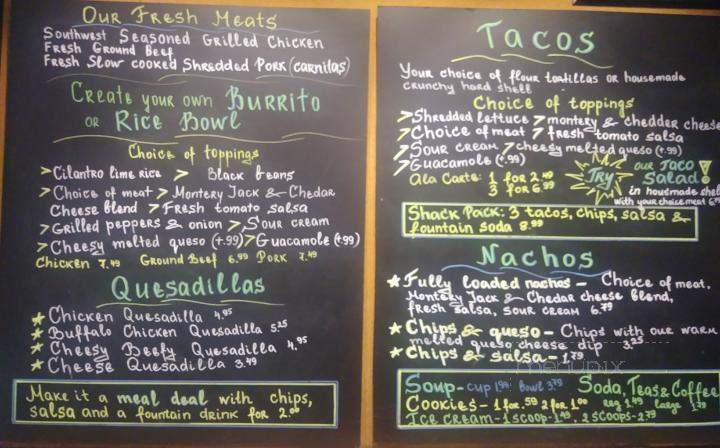 Our Fresh Meats
Southwest Seasoned Grilled Chicken
Fresh Ground Beef
Fresh Slow cooked Shredded Pork (carnitas)
Create your own Burrito
or Rice Bowl
Choice of toppings
>Cilantro lime rice > Black beans
>Choice of meat >Montery Jack & Chedar
Cheese blend >Fresh tomato salsa
>Grilled peppers & onion >Sour cream
>Cheesy melted queso (+.99) >Guacamole (+.99)
Chicken 7.49 Ground Beef 6.99 Pork 7.49
Quesadillas
Chicken Quesadilla 4.95
Buffalo Chicken Quesadilla 5.25
Cheesy Beefy Quesadilla 4.95
Cheese Quesadilla 3.49
Make it a meal deal with chips,
salsa and a fountain drink for 2.00
Tacos
Your choice of flour tortillas or housemade
crunchy hard shell
Choice of toppings
>Shredded lettuce >montery & chedder cheese
>Choice of meat >fresh tomato salsa
>Sour cream >cheesy melted queso (+.99)
>Guacamole (+.99)
Ala Carte: 1 for 2.49
3 for 6.99
Try our Taco
Salad!
in housemade shell
with your choice meat
Shack Pack: 3 tacos, chips, salsa &
fountain soda 8.99
Nachos
Fully loaded nachos - Choice of meat,
Montery Jack & Chedar cheese blend,
fresh salsa, sour cream 6.79
Chips & queso - Chips with our warm
melted queso cheese dip 3.25
Chips & salsa - 1.79
menupix
Soup - cup 1.99 Bowl 3.79 Soda, Teas & Coffee
Cookies - 1 for .59 2 for 1.00 reg 1.49 large 1.79
Ice cream - 1 scoop - 1.49, 2 scoops - 2.79